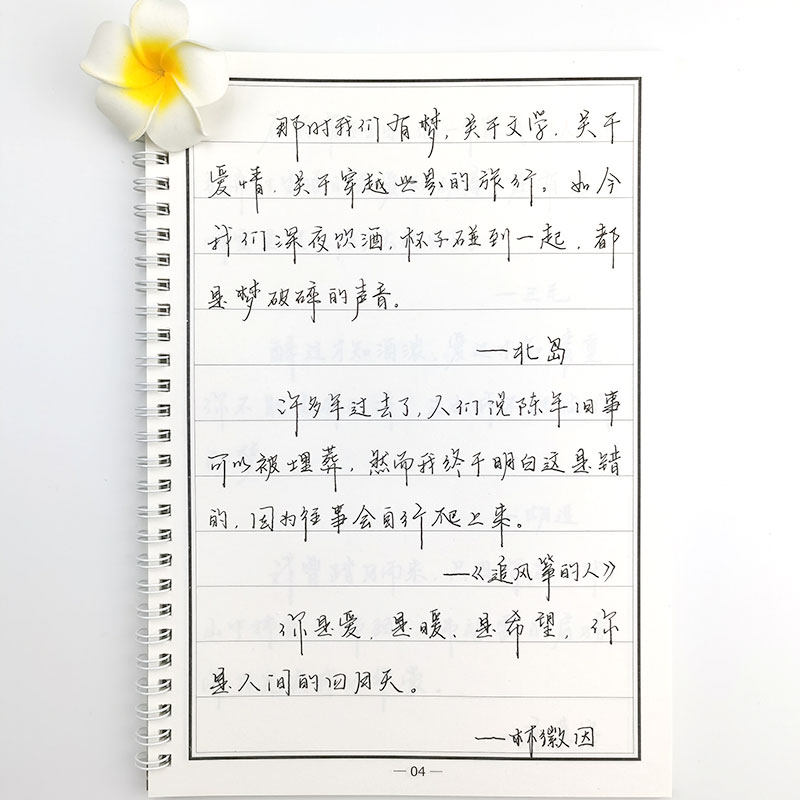 那时我们有梦，关于文学，关于
爱情，关于穿越世界的旅行。如今
我们深夜饮酒，杯子碰到一起，都
是梦破碎的声音。
——北岛
许多年过去了，人们说陈年旧事
可以被埋葬，然而我终于明白这是错
的，因为往事会自行爬上来。
——《追风筝的人》
你是爱，是暖，是希望，你
是人间的四月天。
——林徽因
— 04 —